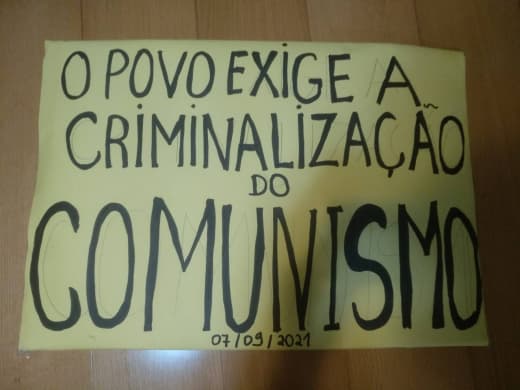 O POVO EXIGE A
CRIMINALIZAÇÃO
DO
COMUNISMO
07/09/2021